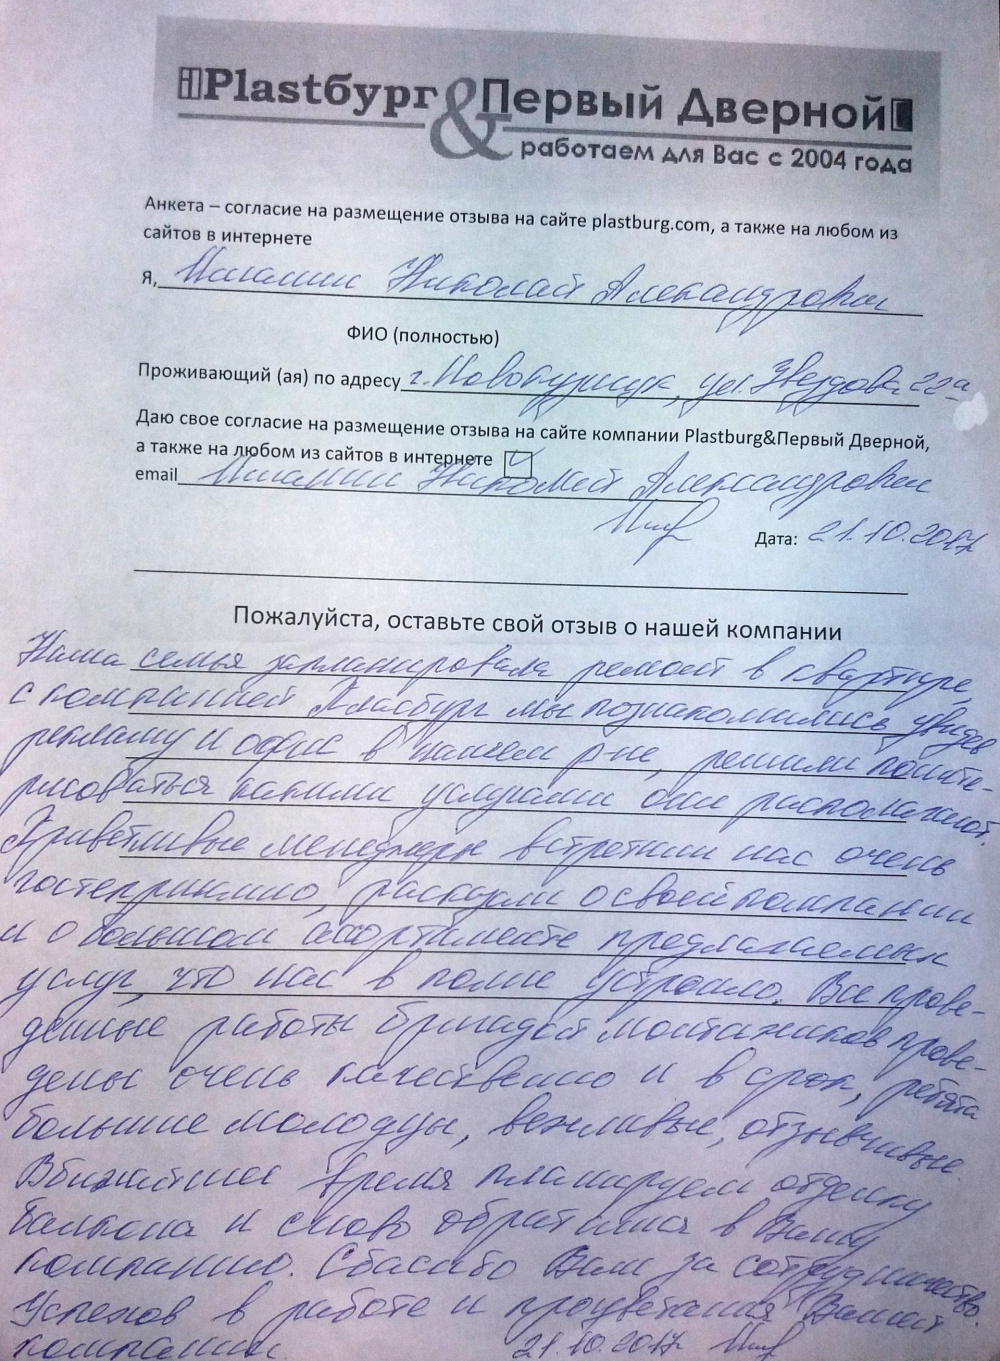 Plastбург & Первый Дверной
работаем для Вас с 2004 года
Анкета – согласие на размещение отзыва на сайте plastburg.com, а также на любом из
сайтов в интернете
Я, Николай Александрович
ФИО (полностью)
Проживающий (ая) по адресу г. Новокузнецк, ул. Звездова 22а
Даю свое согласие на размещение отзыва на сайте компании Plastburg&Первый Дверной,
а также на любом из сайтов в интернете
email Николай Александрович
Дата: 21.10.2017
Пожалуйста, оставьте свой отзыв о нашей компании
Наша семья запланировала ремонт в квартире,
с компанией Пластбург мы познакомились увидев
рекламу и офис в нашем р-не, решили поинте-
рисоваться какими услугами они располагают.
Приветливые менеджеры встретили нас очень
гостеприимно, рассказали о своей компании
и о большом ассортименте предлагаемых
услуг, что нас в полне устроило. Все прове-
денные работы бригадой монтажников прове-
дены очень качественно и в срок, ребята
большие молодцы, вежливые, отзывчивые.
В ближайшее время планируем отделку
балкона и снова обратимся в Вашу
компанию. Спасибо Вам за сотрудничество.
Успехов в работе и процветания Вашей
компании. 21.10.2017